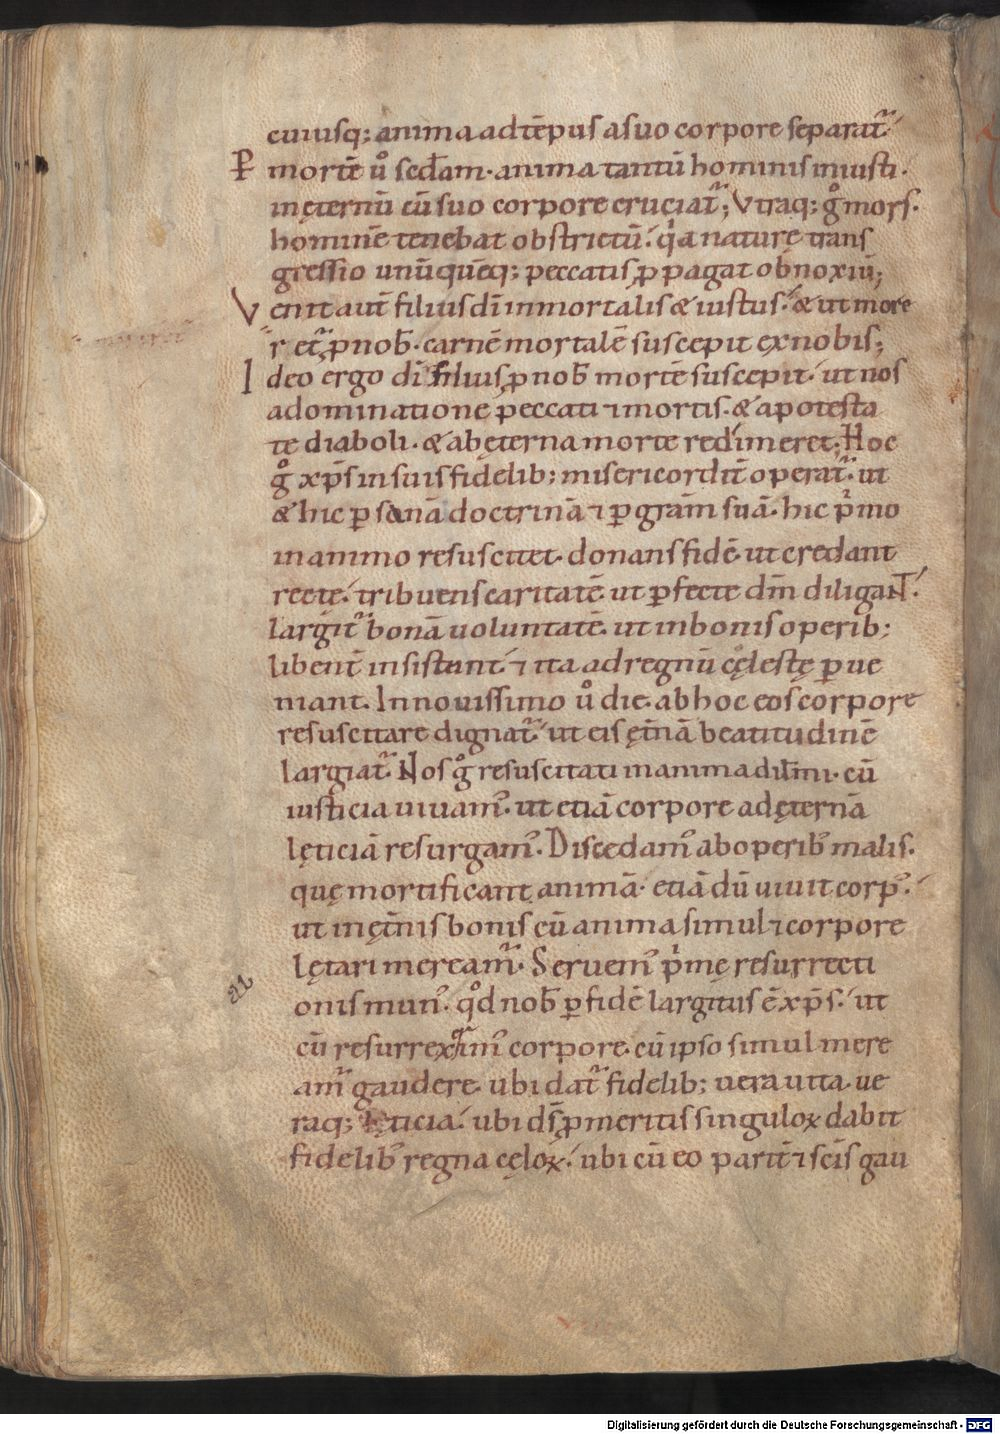 cuiusq; anima ad tēpus a suo corpore separat᷑.
P̄ mortē ů sedam. anima tantū hominis iniusti.
in ęternū cū suo corpore cruciat᷑; Vtraq; gͦ mors.
hominē tenebat obstrictū. qͥa naturę trans
gressio unūquēq; peccatis ꝓpagat obnoxiū;
Venit aut̄ filius dī inmortalis & iustus. & ut more
ret᷑ ꝓ nob̄. carnē mortalē suscepit ex nobis;
Ideo ergo dī filius ꝓ nob̄ mortē suscepit. ut nos
a dominatione peccati ⁊ mortis. & a potesta
te diaboli. & ab ęterna morte redimeret; Hoc
gͦ xp̄s in suis fidelib; misericordit̄ operat᷑. ut
& hic ꝑ sanā doctrinā ⁊ ꝑ grām suā. hic pͥmo
in animo resuscitet. donans fidē. ut credant
recte. tribuens caritatē ut ꝑfecte dm̄ diligaNT.
largit᷑ bonā uoluntatē. ut in bonis operib;
libent̄ insistant. ⁊ ita ad regnū cęlestę ꝑue
niant. In nouissimo ů die. ab hoc eos corpore
resuscitare dignat᷑. ut eis ęt̄nā beatitudinē
largiat᷑. Nos gͦ resuscitati in anima dil̄mi. cū
iusticia uiuam᾽. ut etiā corpore ad ęternā
lęticiā resurgam᾽. Discedam᾽ ab operib᾽ malis.
quę mortificant animā. etiā dū uiuit corp᾽.
ut in ęt̄nis bonis cū anima simul ⁊ corpore
lętari meream᷑. Seruem᾽ pͥmę resurrecti
onis mun᾽. qͦd nob̄ ꝑ fidē largitus ē xp̄s. ut
cū resurrexim᾽ corpore. cū ipso simul mere
am᷑ gaudere. ubi dat᷑ fidelib; uera uita. ue
raq; lęticia. ubi ds̄ ꝓ meritis singuloꝝ dabit
fidelib᾽ regna cęloꝝ. ubi cū eo parit̄ ⁊ scīs gau
Digitalisierung gefördert durch die Deutsche Forschungsgemeinschaft - DFG